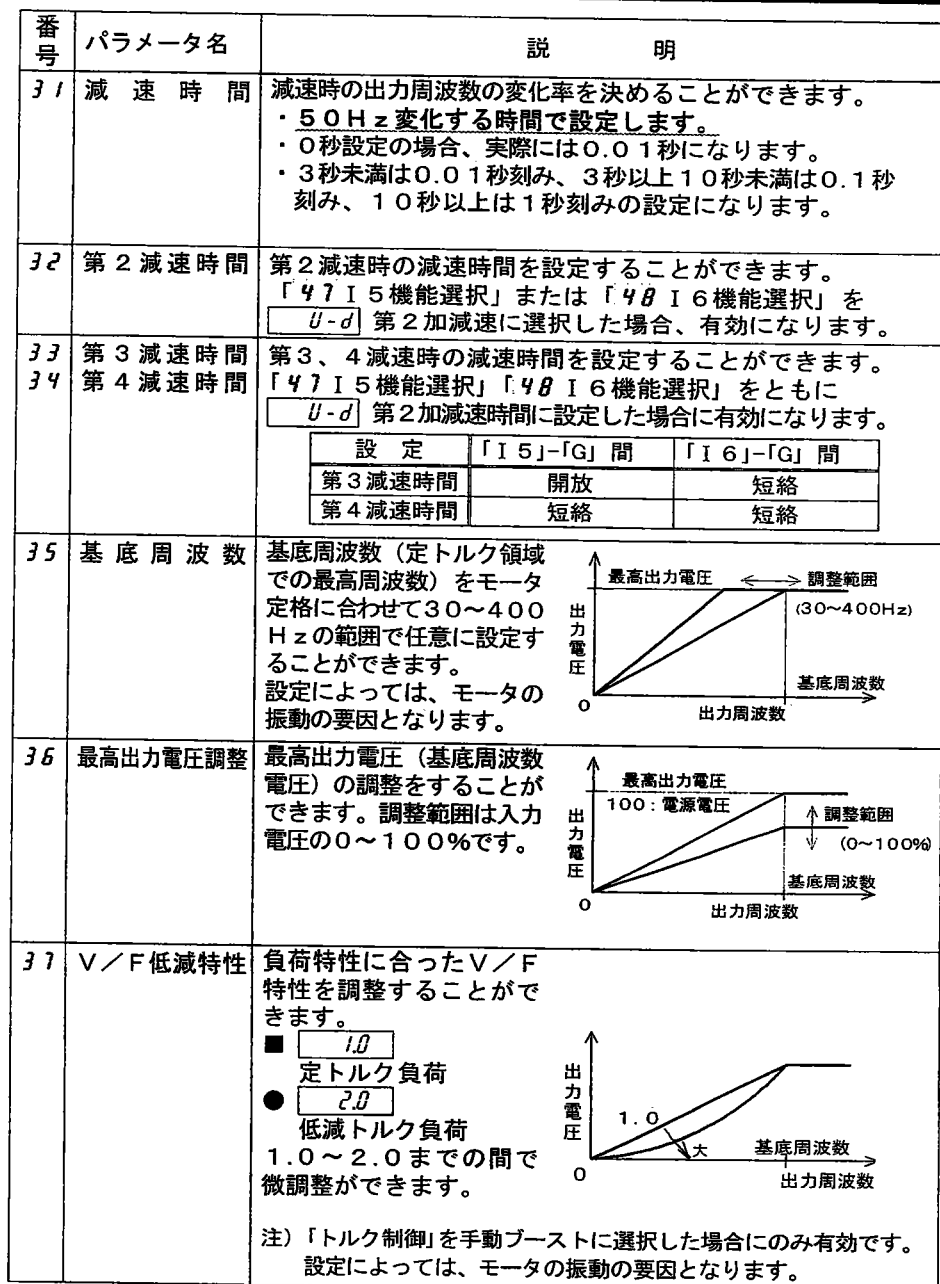 番号 パラメータ名 説明
31 減速時間 減速時の出力周波数の変化率を決めることができます。
・50Hz変化する時間で設定します。
・0秒設定の場合、実際には0.01秒になります。
・3秒未満は0.01秒刻み、3秒以上10秒未満は0.1秒
刻み、10秒以上は1秒刻みの設定になります。
32 第2減速時間 第2減速時の減速時間を設定することができます。
「47I5機能選択」または「48I6機能選択」を
U-d 第2加減速に選択した場合、有効になります。
33 第3減速時間 第3、4減速時の減速時間を設定することができます。
34 第4減速時間 「47I5機能選択」「48I6機能選択」をともに
U-d 第2加減速時間に設定した場合に有効になります。
設定 「I5」-「G」間 「I6」-「G」間
第3減速時間 開放 短絡
第4減速時間 短絡 短絡
35 基底周波数 基底周波数（定トルク領域
での最高周波数）をモータ
定格に合わせて30～400
Hzの範囲で任意に設定す
ることができます。
設定によっては、モータの
振動の要因となります。
最高出力電圧 調整範囲
(30～400Hz)
出力電圧
基底周波数
0 出力周波数
36 最高出力電圧調整 最高出力電圧（基底周波数
電圧）の調整をすることが
できます。調整範囲は入力
電圧の0～100%です。
最高出力電圧
100：電源電圧
調整範囲
(0～100%)
出力電圧
基底周波数
0 出力周波数
37 V／F低減特性 負荷特性に合ったV／F
特性を調整することがで
きます。
■ 1.0
定トルク負荷
● 2.0
低減トルク負荷
1.0～2.0までの間で
微調整ができます。
出力電圧
1.0
大 基底周波数
0 出力周波数
注）「トルク制御」を手動ブーストに選択した場合にのみ有効です。
設定によっては、モータの振動の要因となります。